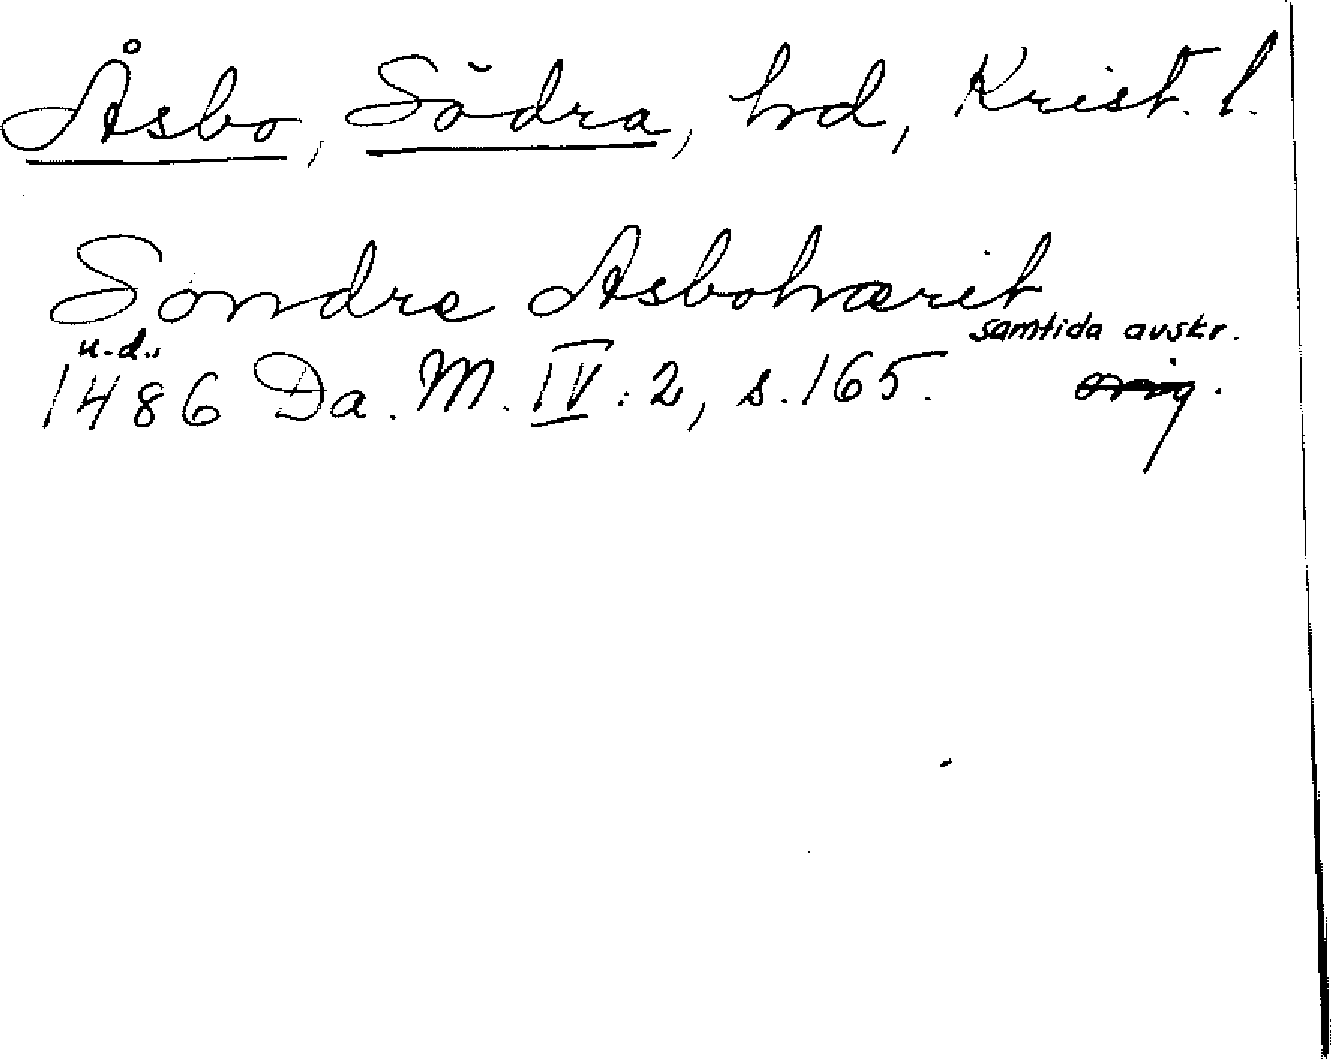 Åsbo, Södra, hd, Krist. l.
Sondre Asbohærit
samtida avskr.
u.d.,
1486 Da. M. IV: 2, s. 165. orig.